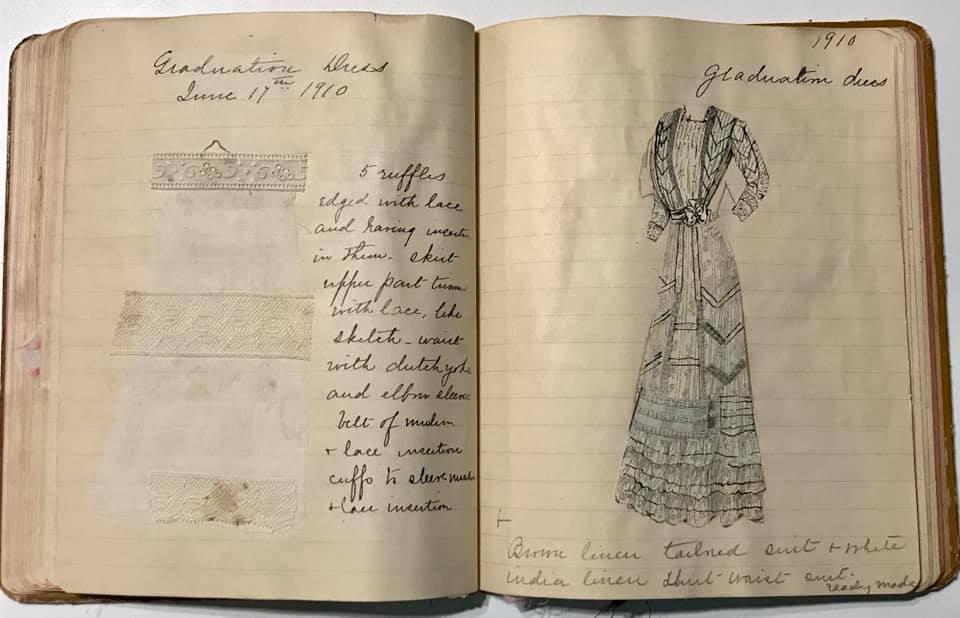 Graduation Dress
June 17th 1910
5 ruffles
edged with lace
and having inserti
in them - skirt
upper part trimm
with lace, like
sketch - waist
with dutch yoke
and elbow sleeve
belt of muslin
+ lace insertion
cuffs to sleeve musli
+ lace insertion
1910
Graduation dress
Brown linen tailored suit + white
india linen shirt waist suit.
ready made